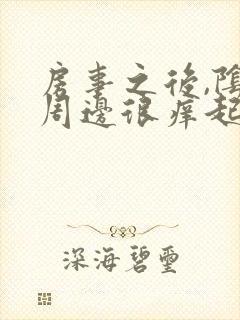 房事之後,陰
周邊很痒起
深海碧璽